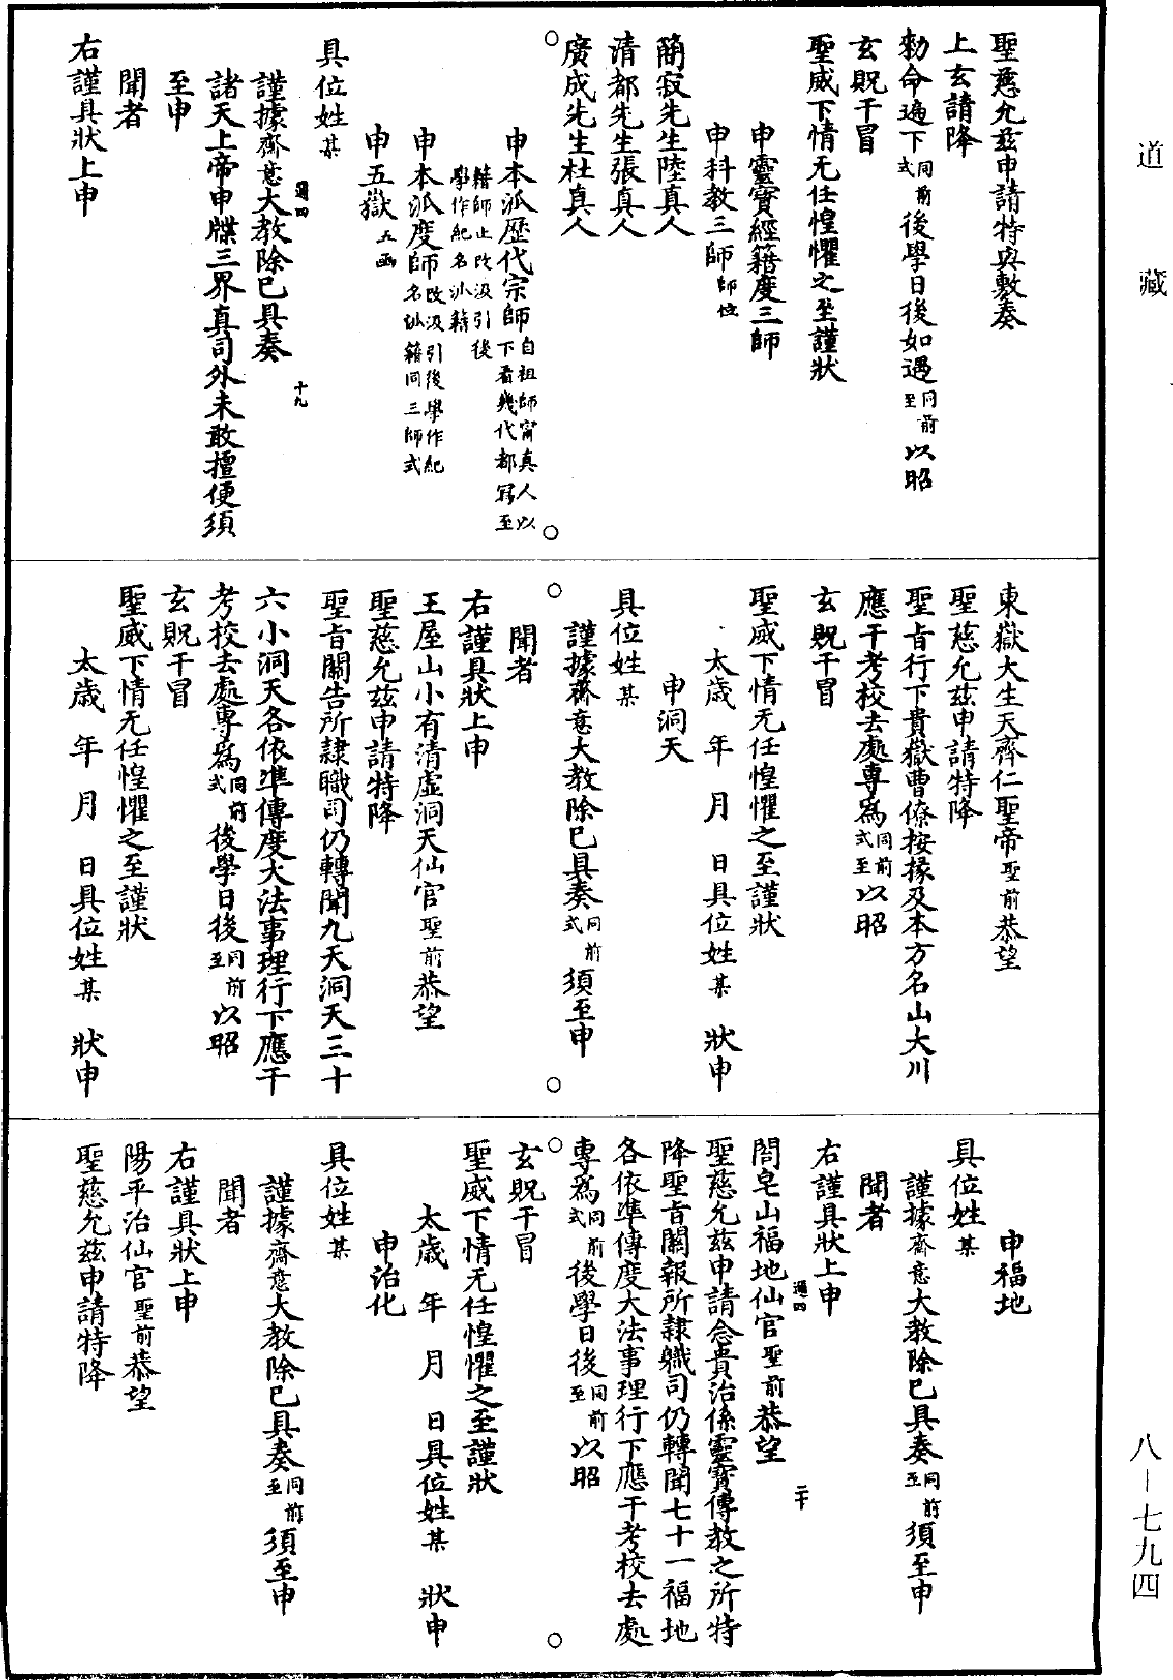 道藏
聖慈允茲申請特與敷奏
上玄請降
勑命遍下同前式後學日後如遇同前至以昭
玄貺干冒
聖威下情无任惶懼之至謹狀
申靈寶經籍度三師
申科教三師師位
簡寂先生陸真人
清都先生張真人
廣成先生杜真人
申本派歷代宗師自祖師甯真人以下看幾代都寫至
籍師止改汲引後學作紀名沁籍
申本派度師改汲引後學作紀名沁籍同三師式
申五嶽五函
具位姓某
謹據齋意大教除已具奏
通四 十九
諸天上帝申牒三界真司外未敢擅便須
至申
聞者
右謹具狀上申
東嶽大生天齊仁聖帝聖前恭望
聖慈允茲申請特降
聖旨行下貴嶽曹僚按掾及本方名山大川
應干考校去處專為同前式至以昭
玄貺干冒
聖威下情无任惶懼之至謹狀
太歲 年 月 日具位姓某 狀申
申洞天
具位姓某
謹據齋意大教除已具奏同前式須至申
聞者
右謹具狀上申
王屋山小有清虛洞天仙官聖前恭望
聖慈允茲申請特降
聖旨關告所隸職司仍轉聞九天洞天三十
六小洞天各依準傳度大法事理行下應干
考校去處專為同前式後學日後同前至以昭
玄貺干冒
聖威下情无任惶懼之至謹狀
太歲 年 月 日具位姓某 狀申
申福地
具位姓某
謹據齋意大教除已具奏同前至須至申
聞者
右謹具狀上申
通四 二十
閤皂山福地仙官聖前恭望
聖慈允茲申請念貴治係靈寶傳教之所特
降聖旨關報所隸職司仍轉聞七十一福地
各依準傳度大法事理行下應干考校去處
專為同前式後學日後同前至以昭
玄貺干冒
聖威下情无任惶懼之至謹狀
太歲 年 月 日具位姓某 狀申
申治化
具位姓某
謹據齋意大教除已具奏同前至須至申
聞者
右謹具狀上申
陽平治仙官聖前恭望
聖慈允茲申請特降
八—七九四